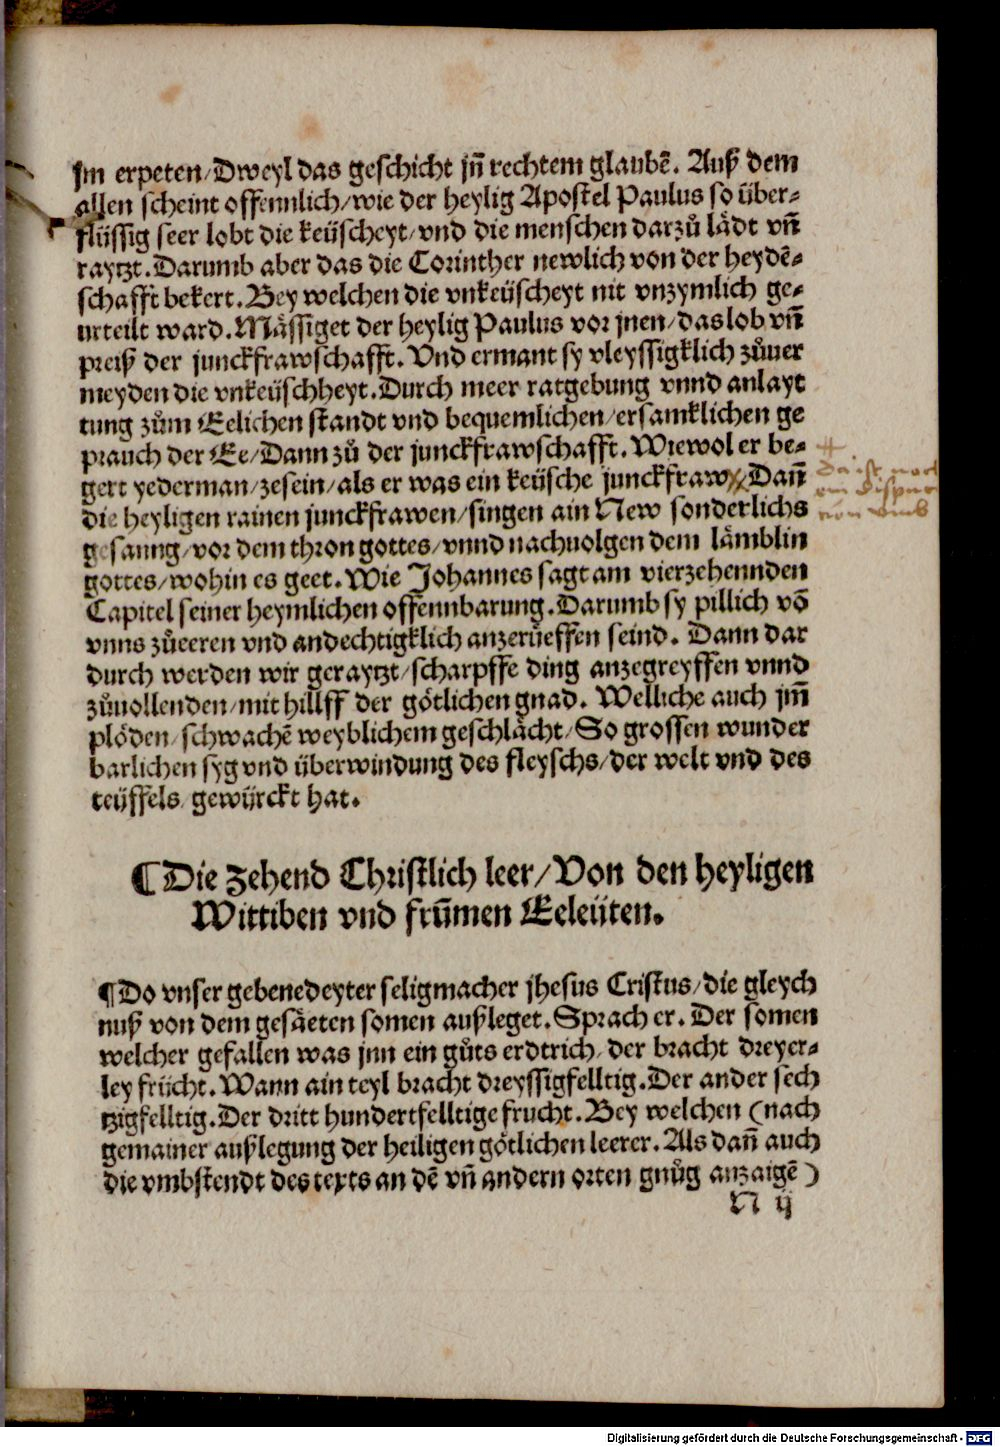 Jm erpeten/Dweyl das geschicht jñ rechtem glaubẽ. Auß dem
allen scheint offennlich/wie der heylig Apostel Paulus so über-
flüssig seer lobt die keüscheyt/vnd die menschen darzů lådt vñ
raytzt. Darumb aber das die Corinther newlich von der heydẽ-
schafft bekert. Bey welchen die vnkeüscheyt nit vnzymlich ge-
urteilt ward. Mässiget der heylig Paulus vor jnen/das lob vñ
preiß der junckfrawschafft. Vnd ermant sy vleyssigklich zůuer
meyden die vnkeüschheyt. Durch meer ratgebung vnnd anlayt
tung zům Eelichen standt vnd bequemlichen/ersamklichen ge
prauch der Ee/Dann zů der junckfrawschafft. Wiewol er be-
gert yederman/zesein/als er was ein keüsche junckfraw/Dañ
die heyligen rainen junckfrawen/singen ain New sonderlichs
gesanng/vor dem thron gottes/vnnd nachuolgen dem lämblin
gottes/wohin es geet. Wie Johannes sagt am vierzehennden
Capitel seiner heymlichen offennbarung. Darumb sy pillich võ
vnns zůeeren vnd andechtigklich anzerüeffen seind. Dann dar
durch werden wir geraytzt/scharpffe ding anzegreyffen vnnd
zůuollenden/mit hillff der götlichen gnad. Welliche auch jm̃
plöden/schwachẽ weyblichem geschlächt/So grossen wunder
barlichen syg vnd überwindung des fleyschs/der welt vnd des
teüffels/gewürckt hat.
¶Die zehend Christlich leer/Von den heyligen
Wittiben vnd frũmen Eeleüten.
¶Do vnser gebenedeyter seligmacher jhesus Cristus/die gleych
nuß von dem gesäeten somen außleget. Sprach er. Der somen
welcher gefallen was jnn ein gůts erdtrich/der bracht dreyer-
ley frücht. Wann ain teyl bracht dreyssigfelltig. Der ander sech
tzigfelltig. Der dritt hundertfelltige frucht. Bey welchen (nach
gemainer außlegung der heiligen götlichen leerer. Als dañ auch
die vmbstendt des texts an dẽ vñ andern orten gnůg anzaigẽ)
N ij
Digitalisierung gefördert durch die Deutsche Forschungsgemeinschaft - DFG